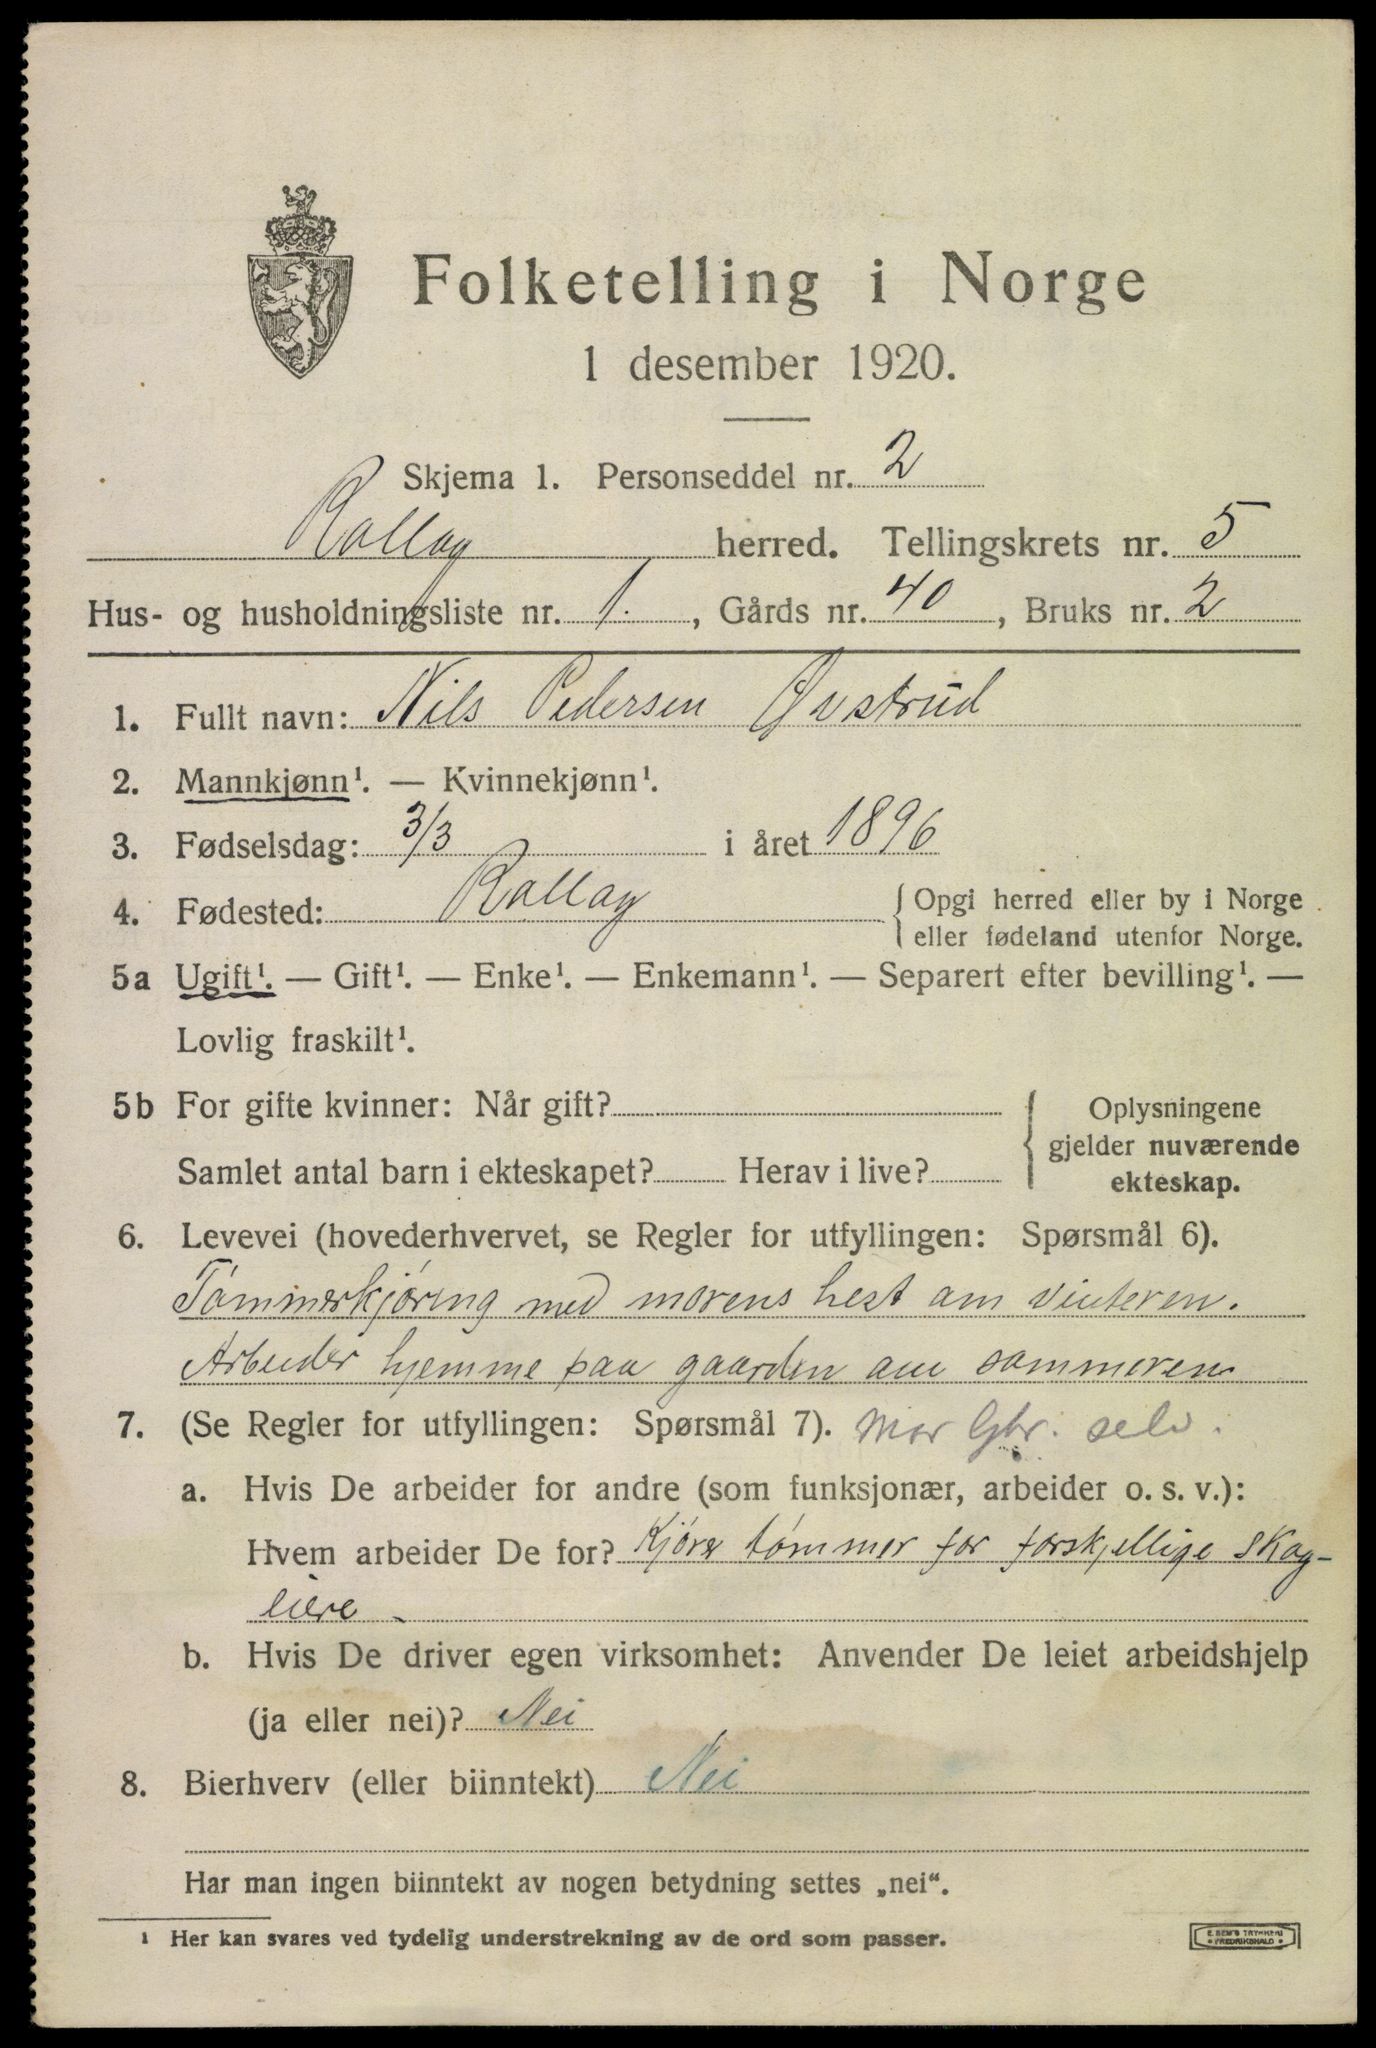 Folketelling i Norge
1 desember 1920.
Skjema 1. Personseddel nr. 2
Rollag herred. Tellingskrets nr. 5
Hus- og husholdningsliste nr. 1., Gårds nr. 40, Bruks nr. 2
1. Fullt navn: Nils Pedersen Øvstrud
2. Mannkjønn¹. — Kvinnekjønn¹.
3. Fødselsdag: 3/3 i året 1896
4. Fødested: Rollag { Opgi herred eller by i Norge
eller fødeland utenfor Norge.
5a Ugift¹. — Gift¹. — Enke¹. — Enkemann¹. — Separert efter bevilling¹. —
Lovlig fraskilt¹.
5b For gifte kvinner: Når gift?
Samlet antal barn i ekteskapet? Herav i live?
{ Oplysningene
gjelder nuværende
ekteskap.
6. Levevei (hovederhvervet, se Regler for utfyllingen: Spørsmål 6).
Tømmerkjøring med morens hest om vinteren.
Arbeider hjemme paa gaarden om sommeren
7. (Se Regler for utfyllingen: Spørsmål 7). Mor Gbr. selv.
a. Hvis De arbeider for andre (som funksjonær, arbeider o. s. v.):
Hvem arbeider De for? Kjører tømmer for forskjellige skog-
eiere -
b. Hvis De driver egen virksomhet: Anvender De leiet arbeidshjelp
(ja eller nei)? Nei
8. Bierhverv (eller biinntekt) Nei
Har man ingen biinntekt av nogen betydning settes „nei“.
¹ Her kan svares ved tydelig understrekning av de ord som passer.
E. SEM'S TRYKKERI
FREDRIKSHALD